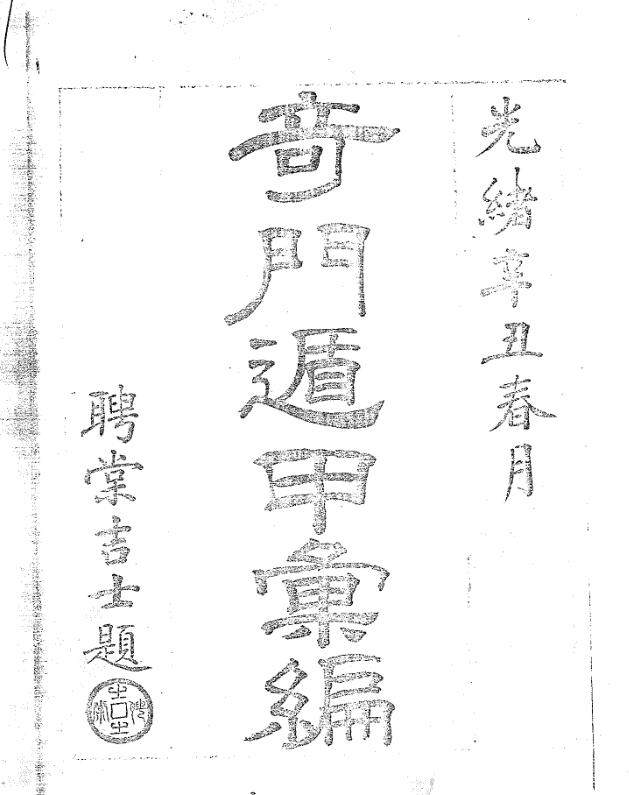 光緒辛丑春月
奇門遁甲彙編
聘棠吉士題